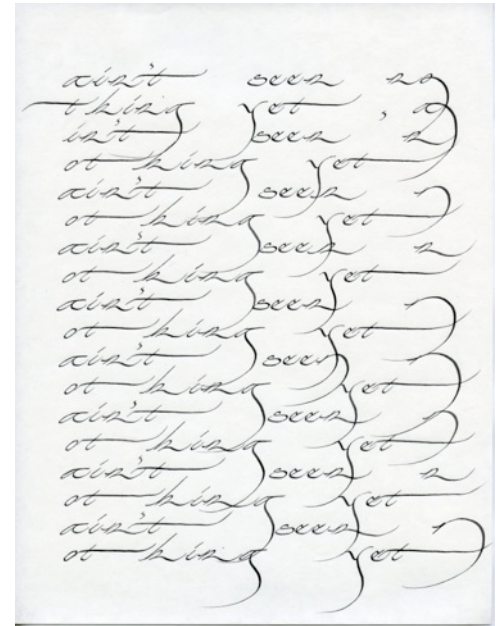 ain't seen no
thing yet, a
in't seen n
ot hing yet
ain't seen n
ot hing yet
ain't seen n
ot hing yet
ain't seen n
ot hing yet
ain't seen n
ot hing yet
ain't seen n
ot hing yet
ain't seen n
ot hing yet
ain't seen n
ot hing yet